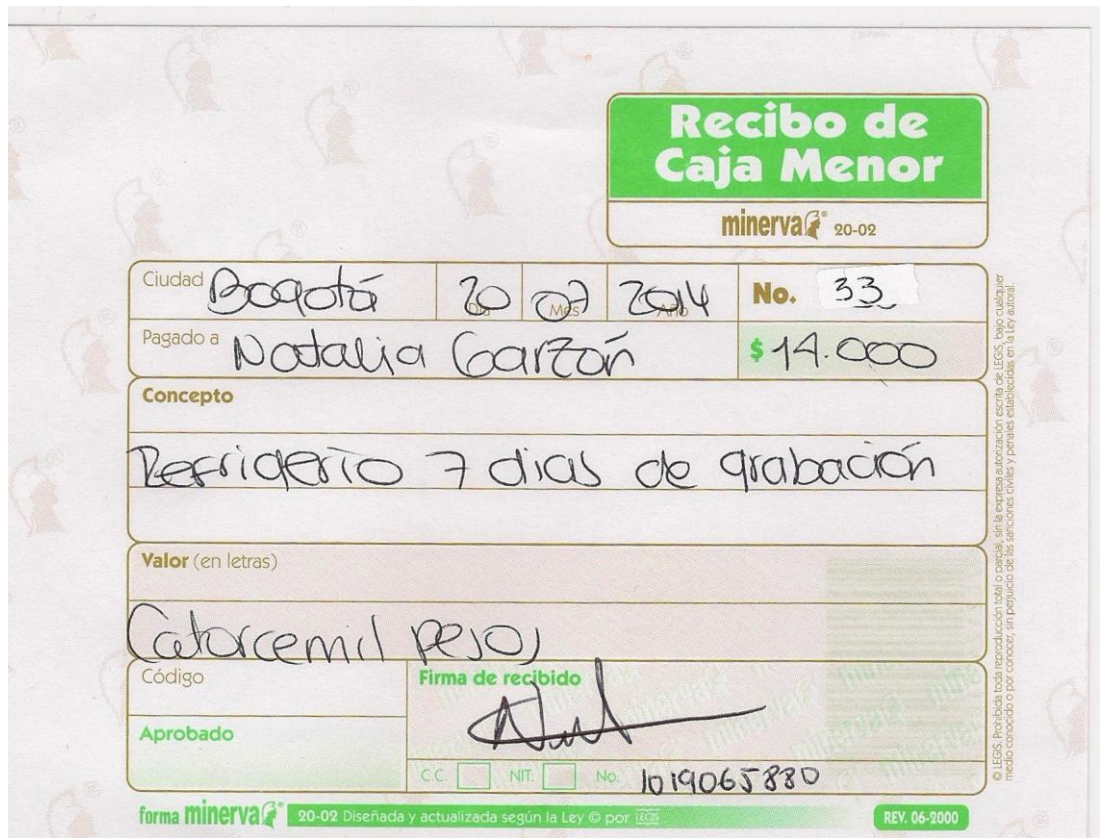 Recibo de
Caja Menor
minerva® 20-02
Ciudad Bogotá 20 Día 07 Mes 2014 Año No. 33
Pagado a Natalia Garzón $ 14.000
Concepto
Refrigerio 7 dias de grabación
Valor (en letras)
Catorcemil pesos
Código
Firma de recibido
Aprobado
C.C. NIT. No. 1019065880
forma minerva® 20-02 Diseñada y actualizada según la Ley © por LEGIS REV. 06-2000
© LEGIS. Prohibida toda reproducción total o parcial, sin la expresa autorización escrita de LEGIS, bajo cualquier
medio conocido o por conocer, sin perjuicio de las sanciones civiles y penales establecidas en la Ley autoral.